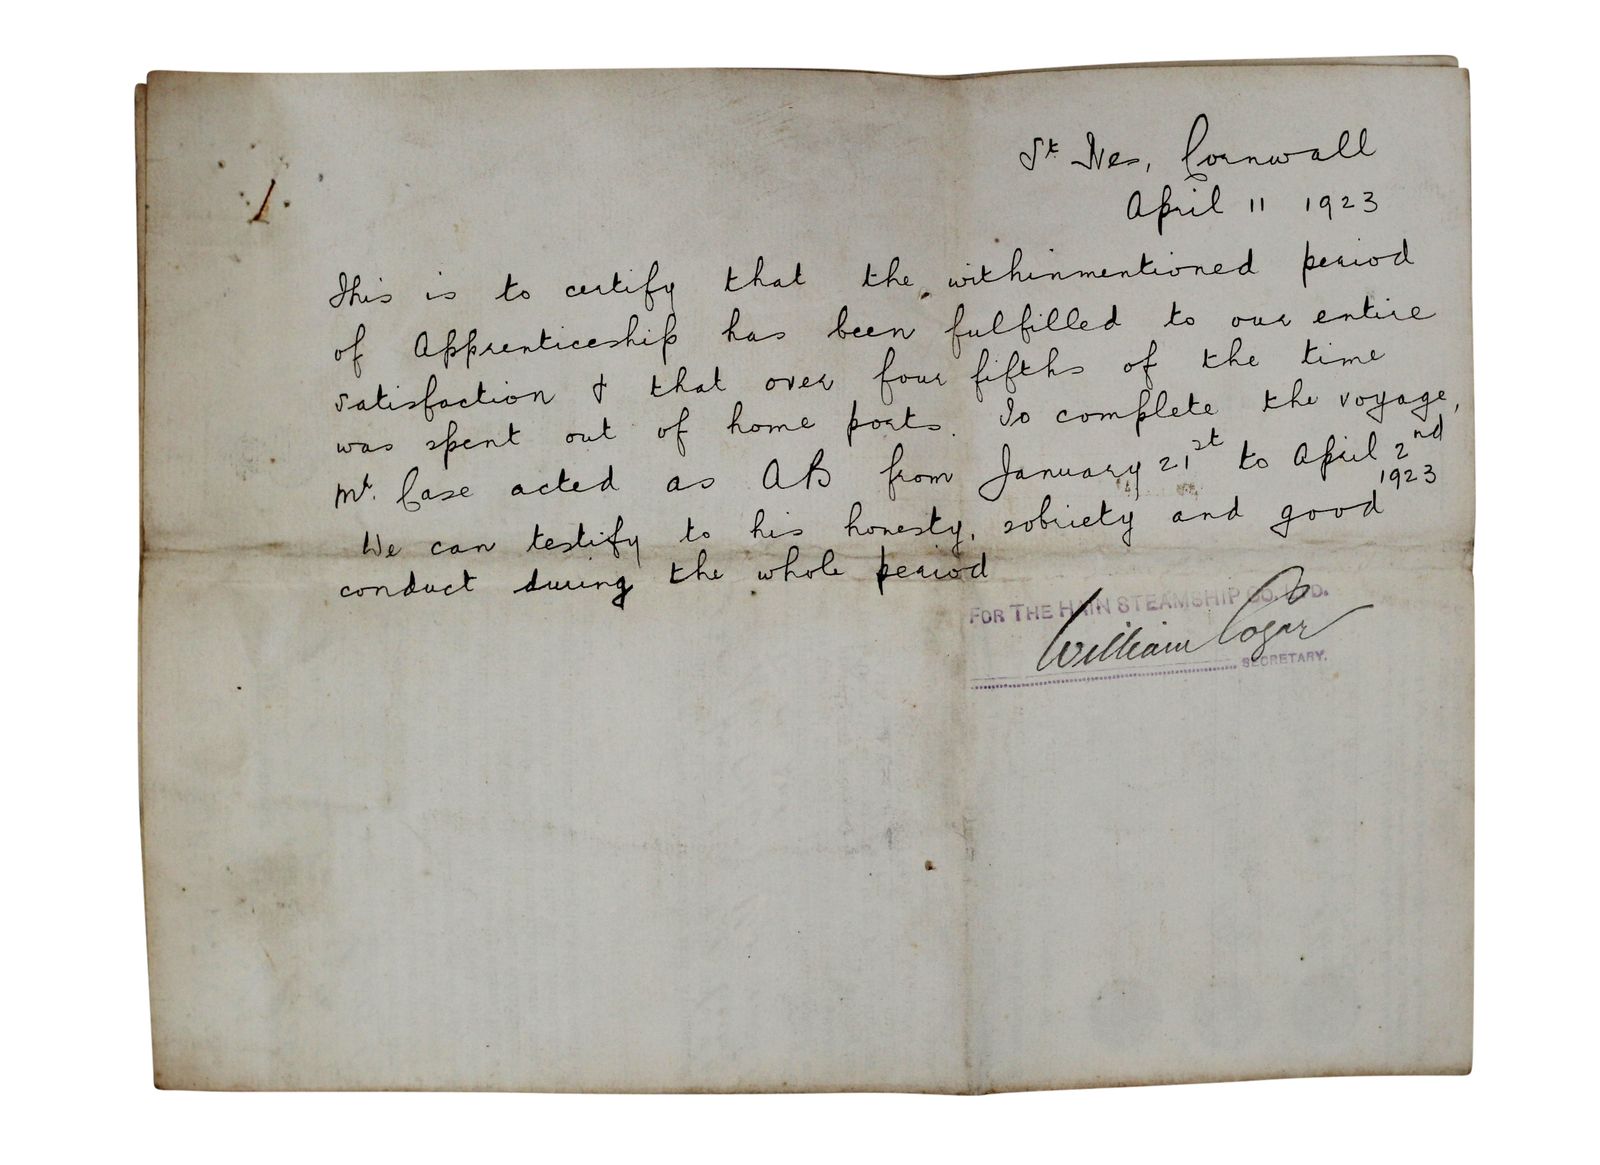 St Ives, Cornwall
April 11 1923
This is to certify that the withinmentioned period
of Apprenticeship has been fulfilled to our entire
satisfaction & that over four fifths of the time
was spent out of home ports. To complete the voyage,
Mr. Case acted as AB from January 21st to April 2nd
1923
We can testify to his honesty, sobriety and good
conduct during the whole period
FOR THE HAIN STEAMSHIP CO. LTD.
William Cogar
SECRETARY.